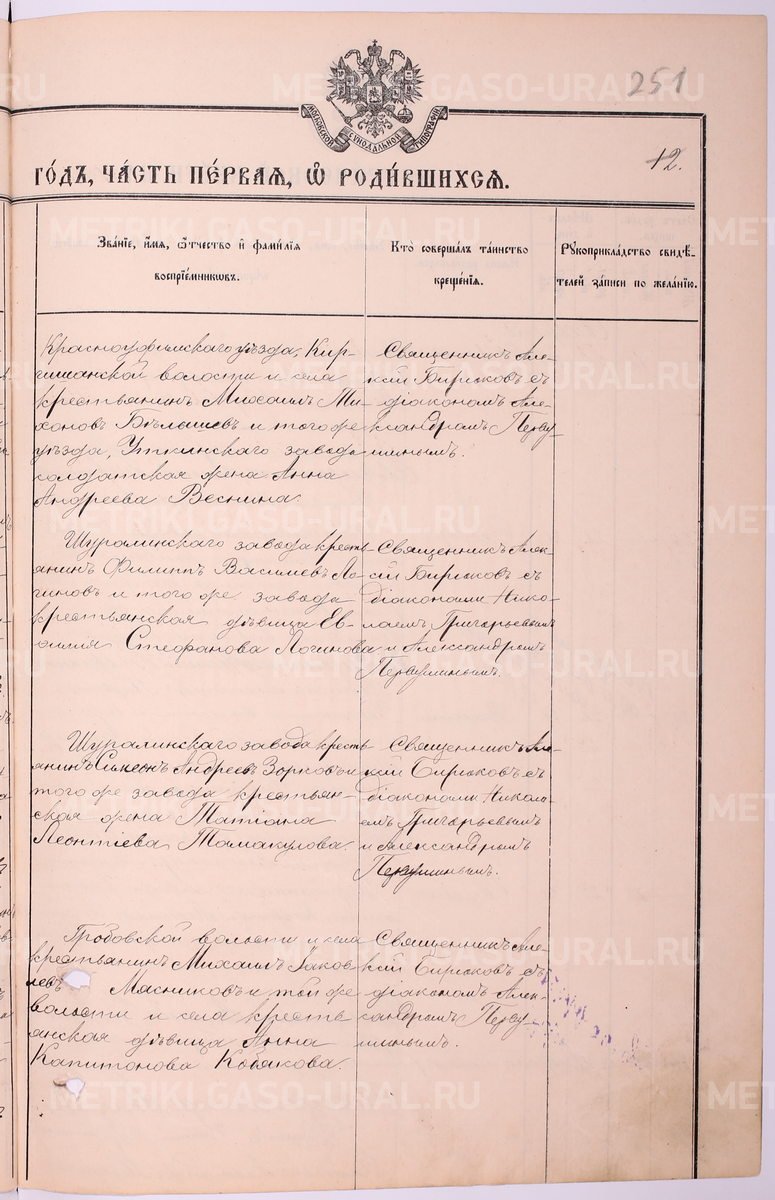 251
МОСКОВСКОЙ СѴНОДАЛЬНОЙ ТИПОГРАФІИ
12.
ГО́ДЪ, ЧА́СТЬ ПЕ́РВАЯ, Ѽ РОДИ́ВШИХСѦ.
Зва́нїе, и҆́мѧ, ѻ҆́тчество и҆ фами́лїѧ
воспрїе́мникѡвъ.
Кто̀ соверша́лъ та́инство
креще́нїѧ.
Рꙋкоприкла́дство свидѣ́-
телей за́писи по жела́нїю.
Красноуфимскаго уѣзда, Кир-
гишанской волости и села
крестьянинъ Михаилъ Ми-
хоновъ Бѣлашевъ и того же
уѣзда, Уткинскаго завода
солдатская жена Анна
Андреева Веснина.
Священникъ Але-
ксій Бирюковъ съ
діакономъ Але-
ксандромъ Перву-
шинымъ.
Шуралинскаго завода кресть-
янинъ Филиппъ Василіевъ Ло-
гиновъ и того же завода
крестьянская дѣвица Ев-
димія Стефанова Логинова
Священникъ Алек-
сій Бирюковъ съ
діаконами Нико-
лаемъ Григорьевымъ
и Александромъ
Первушинымъ.
Шуралинскаго завода кресть-
янинъ Симеонъ Андреевъ Зорковъ и
того же завода крестьян-
ская жена Татіана
Леонтіева Тамакулова.
Священникъ Але-
ксій Бирюковъ съ
діаконами Никола-
емъ Григорьевымъ
и Александромъ
Первушинымъ.
Гробовской волости и села
крестьянинъ Михаилъ Яков-
левъ Мясниковъ и той же
волости и села кресть-
янская дѣвица Анна
Капитонова Кобякова.
Священникъ Але-
ксій Бирюковъ съ
діакономъ Алек-
сандромъ Перву-
шинымъ.
METRIKI.GASO-URAL.RU